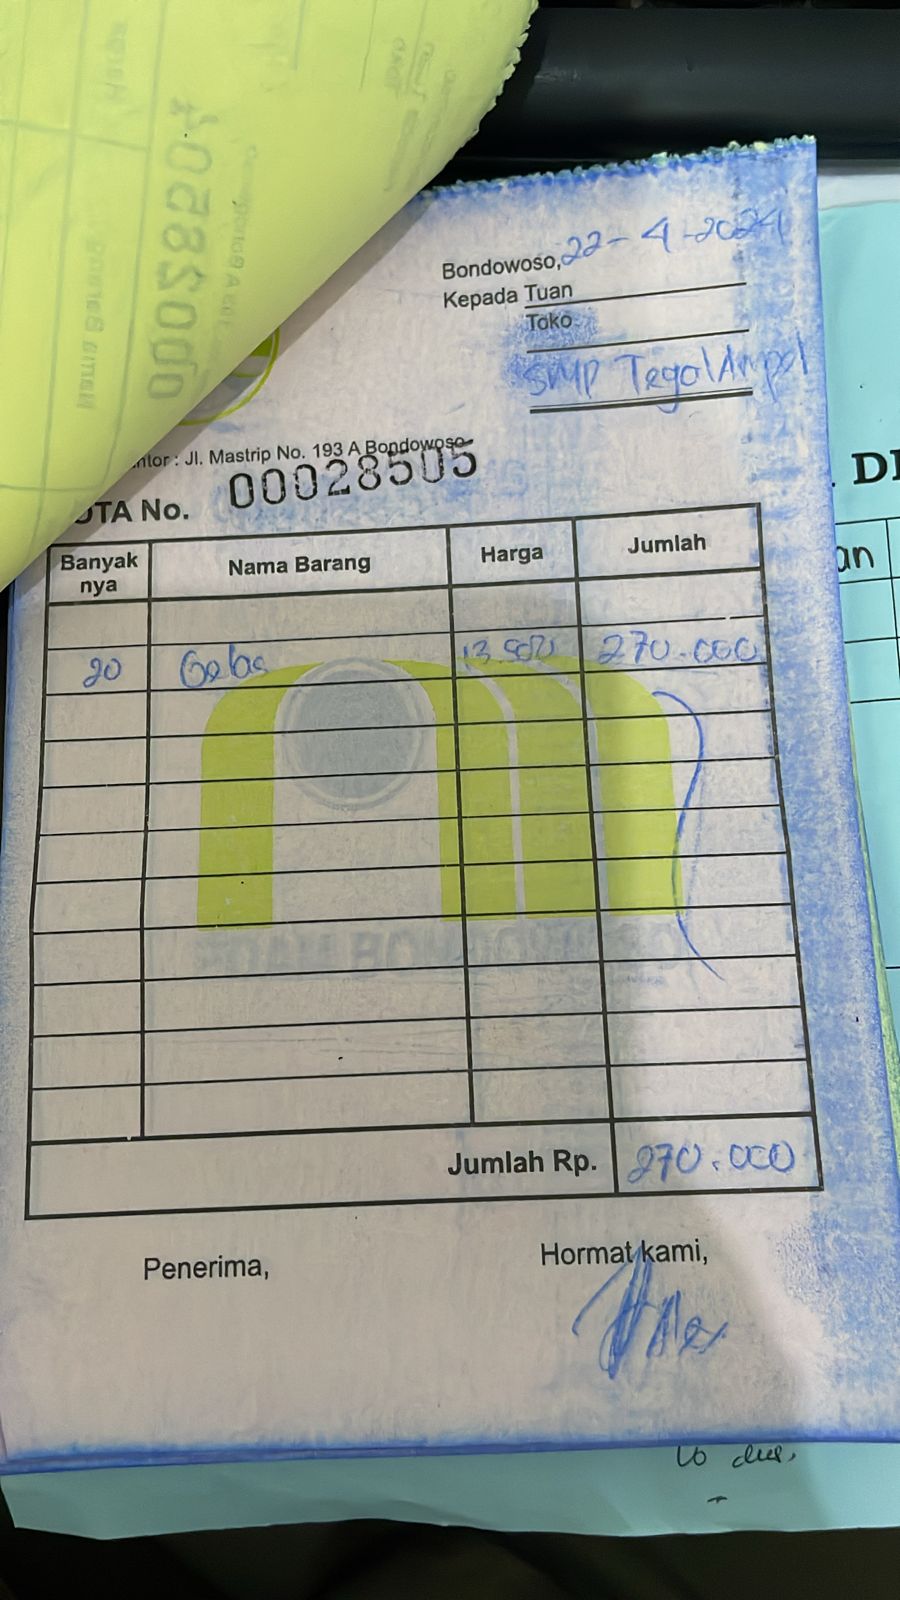 00028504
Bondowoso, 22-4-2024
Kepada Tuan
Toko
SMP TegalAmpel
ntor : Jl. Mastrip No. 193 A Bondowoso
OTA No. 00028505
Banyak nya Nama Barang Harga Jumlah
20 Gelas 13.500 270.000
Jumlah Rp. 270.000
Penerima, Hormat kami,
DI
an